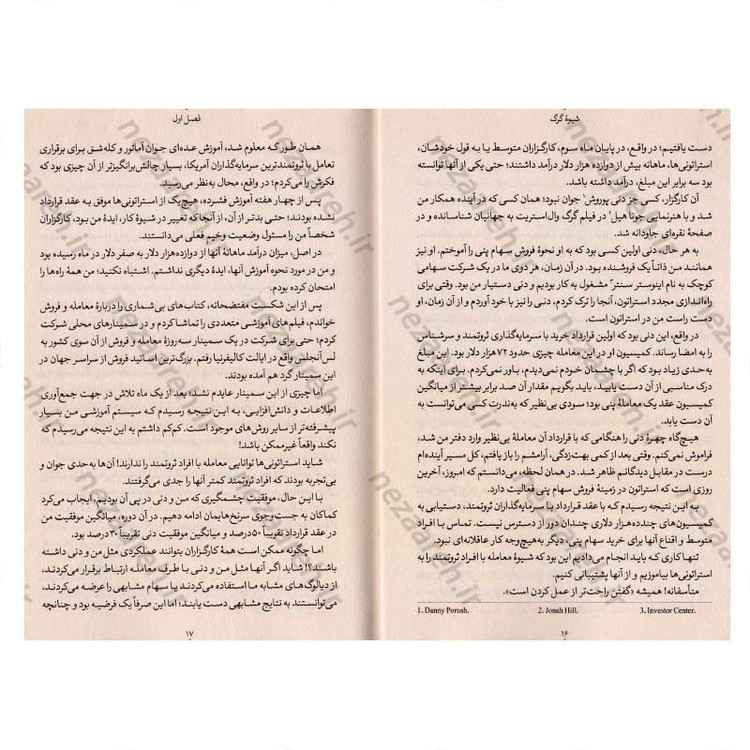 شیوهٔ گرگ
دست یافتیم؛ در واقع، در پایان ماه سوم، کارگزاران متوسط یا به قول خودشان،
استراتونی‌ها، ماهانه بیش از دوازده هزار دلار درآمد داشتند؛ حتی یکی از آنها توانسته
بود سه برابر این مبلغ، درآمد داشته باشد.
آن کارگزار، کسی جز دنی پوروش¹ جوان نبود؛ همان کسی که در آینده همکار من
شد و با هنرنمایی جونا هیل² در فیلم گرگ وال‌استریت به جهانیان شناسانده و در
صفحهٔ نقره‌ای جاودانه شد.
به هر حال، دنی اولین کسی بود که به او نحوهٔ فروش سهام پنی را آموختم. او نیز
همانند من ذاتاً یک فروشنده بود. در آن زمان، هر دوی ما در یک شرکت سهامی
کوچک به نام اینوستر سنتر³ مشغول به کار بودیم و دنی دستیار من بود. وقتی برای
راه‌اندازی مجدد استراتون، آنجا را ترک کردم، دنی را نیز با خود آوردم و از آن زمان، او
دست راست من در استراتون است.
در واقع، این دنی بود که اولین قرارداد خرید با سرمایه‌گذاری ثروتمند و سرشناس
را به امضا رساند. کمیسیون او در این معامله چیزی حدود ۷۲هزار دلار بود. این مبلغ
به‌حدی زیاد بود که اگر با چشمان خودم نمی‌دیدم، باور نمی‌کردم. برای اینکه به
درک مناسبی از آن دست یابید، باید بگویم مقدار آن صد برابر بیشتر از میانگین
کمیسیون عقد یک معاملهٔ پنی بود؛ سودی بی‌نظیر که به‌ندرت کسی می‌توانست به
آن دست یابد.
هیچ‌گاه چهرهٔ دنی را هنگامی که با قرارداد آن معاملهٔ بی‌نظیر وارد دفتر من شد،
فراموش نمی‌کنم. وقتی بعد از کمی بهت‌زدگی، آرامشم را باز یافتم، کل مسیر آینده‌ام
درست در مقابل دیدگانم ظاهر شد. در همان لحظه، می‌دانستم که امروز، آخرین
روزی است که استراتون در زمینهٔ فروش سهام پنی فعالیت دارد.
به این نتیجه رسیدم که با عقد قرارداد با سرمایه‌گذاران ثروتمند، دستیابی به
کمیسیون‌های چنده‌هزار دلاری چندان دور از دسترس نیست. تماس با افراد
متوسط و اقناع آنها برای خرید سهام پنی، دیگر به‌هیچ‌وجه کار عاقلانه‌ای نبود.
تنها کاری که باید انجام می‌دادیم این بود که شیوهٔ معامله با افراد ثروتمند را به
استراتونی‌ها بیاموزیم و از آنها پشتیبانی کنیم.
متأسفانه! همیشه «گفتن راحت‌تر از عمل کردن است».
1. Danny Porush. 2. Jonah Hill. 3. Investor Center.
۱۶
فصل اول
همان طور که معلوم شد، آموزش عده‌ای جوان آماتور و کله‌شق برای برقراری
تعامل با ثروتمندترین سرمایه‌گذاران آمریکا، بسیار چالش‌برانگیزتر از آن چیزی بود که
فکرش را می‌کردم؛ در واقع، محال به‌نظر می‌رسید.
پس از چهار هفته آموزش فشرده، هیچ‌یک از استراتونی‌ها موفق به عقد قرارداد
نشده بودند؛ حتی بدتر از آن، از آنجا که تغییر در شیوهٔ کار، ایدهٔ من بود، کارگزاران
شخصاً من را مسئول وضعیت وخیم فعلی می‌دانستند.
در اصل، میزان درآمد ماهانهٔ آنها از دوازده‌هزار دلار به صفر دلار در ماه رسیده بود
و من در مورد نحوه آموزش آنها، ایدهٔ دیگری نداشتم. اشتباه نکنید؛ من همهٔ راه‌ها را
امتحان کرده بودم.
پس از این شکست مفتضحانه، کتاب‌های بی‌شماری را دربارهٔ معامله و فروش
خواندم، فیلم‌های آموزشی متعددی را تماشا کردم و در سمینارهای محلی شرکت
کردم؛ حتی برای شرکت در یک سمینار سه‌روزهٔ معامله و فروش از آن سوی کشور به
لس‌آنجلس واقع در ایالت کالیفرنیا رفتم. بزرگ‌ترین اساتید فروش از سراسر جهان در
این سمینار گرد هم آمده بودند.
اما چیزی از این سمینار عایدم نشد؛ بعد از یک ماه تلاش در جهت جمع‌آوری
اطلاعات و دانش‌افزایی، به این نتیجه رسیدم که سیستم آموزشی من بسیار
پیشرفته‌تر از سایر روش‌های موجود است. کم‌کم داشتم به این نتیجه می‌رسیدم که
نکند واقعاً غیرممکن باشد!
شاید استراتونی‌ها توانایی معامله با افراد ثروتمند را ندارند! آن‌ها به‌حدی جوان و
بی‌تجربه بودند که افراد ثروتمند کمتر آنها را جدی می‌گرفتند.
با این حال، موفقیت چشمگیری که من و دنی در پی آن بودیم، ایجاب می‌کرد
کماکان به جست‌وجوی سرنخ‌هایمان ادامه دهیم. در آن دوره، میانگین موفقیت من
در عقد قرارداد تقریباً ۵۰درصد و میانگین موفقیت دنی تقریباً ۳۰درصد بود.
اما چگونه ممکن است همهٔ کارگزاران بتوانند عملکردی مثل من و دنی داشته
باشند؟! شاید اگر آنها مثل من و دنی با طرف معامله ارتباط برقرار می‌کردند،
از دیالوگ‌های مشابه ما استفاده می‌کردند یا سهام مشابهی را عرضه می‌کردند،
می‌توانستند به نتایج مشابهی دست یابند؛ اما این صرفاً یک فرضیه بود و چنانچه
۱۷
nezaareh.ir